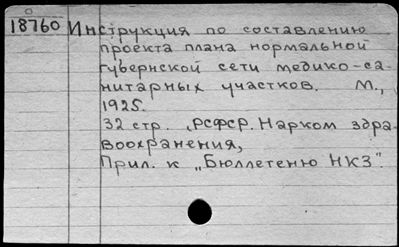 18760 Инструкция по составлению
проекта плана нормальной
губернской сети медико-са-
нитарных участков. М.,
1925.
32 стр. (РСФСР. Нарком здра-
воохранения,
Прил. к „Бюллетеню НКЗ".